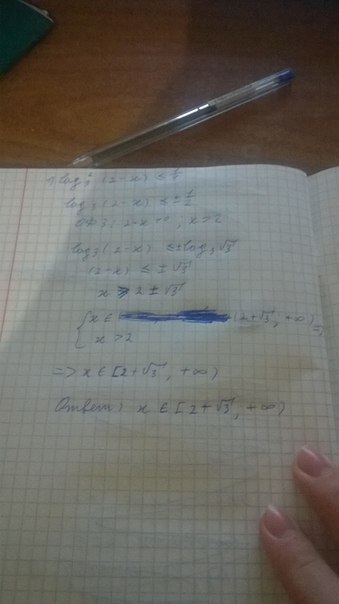 log₃² (2-x) ≤ 1/4
log₃ (2-x) ≤ ± 1/2
ОДЗ: 2-x > 0, x > 2
log₃ (2-x) ≤ ± log₃ √3
(2-x) ≤ ± √3
x ≥ 2 ± √3
{ x ∈ (2+√3, +∞)
x > 2
=> x ∈ [2+√3, +∞)
Ответ: x ∈ [2+√3, +∞)